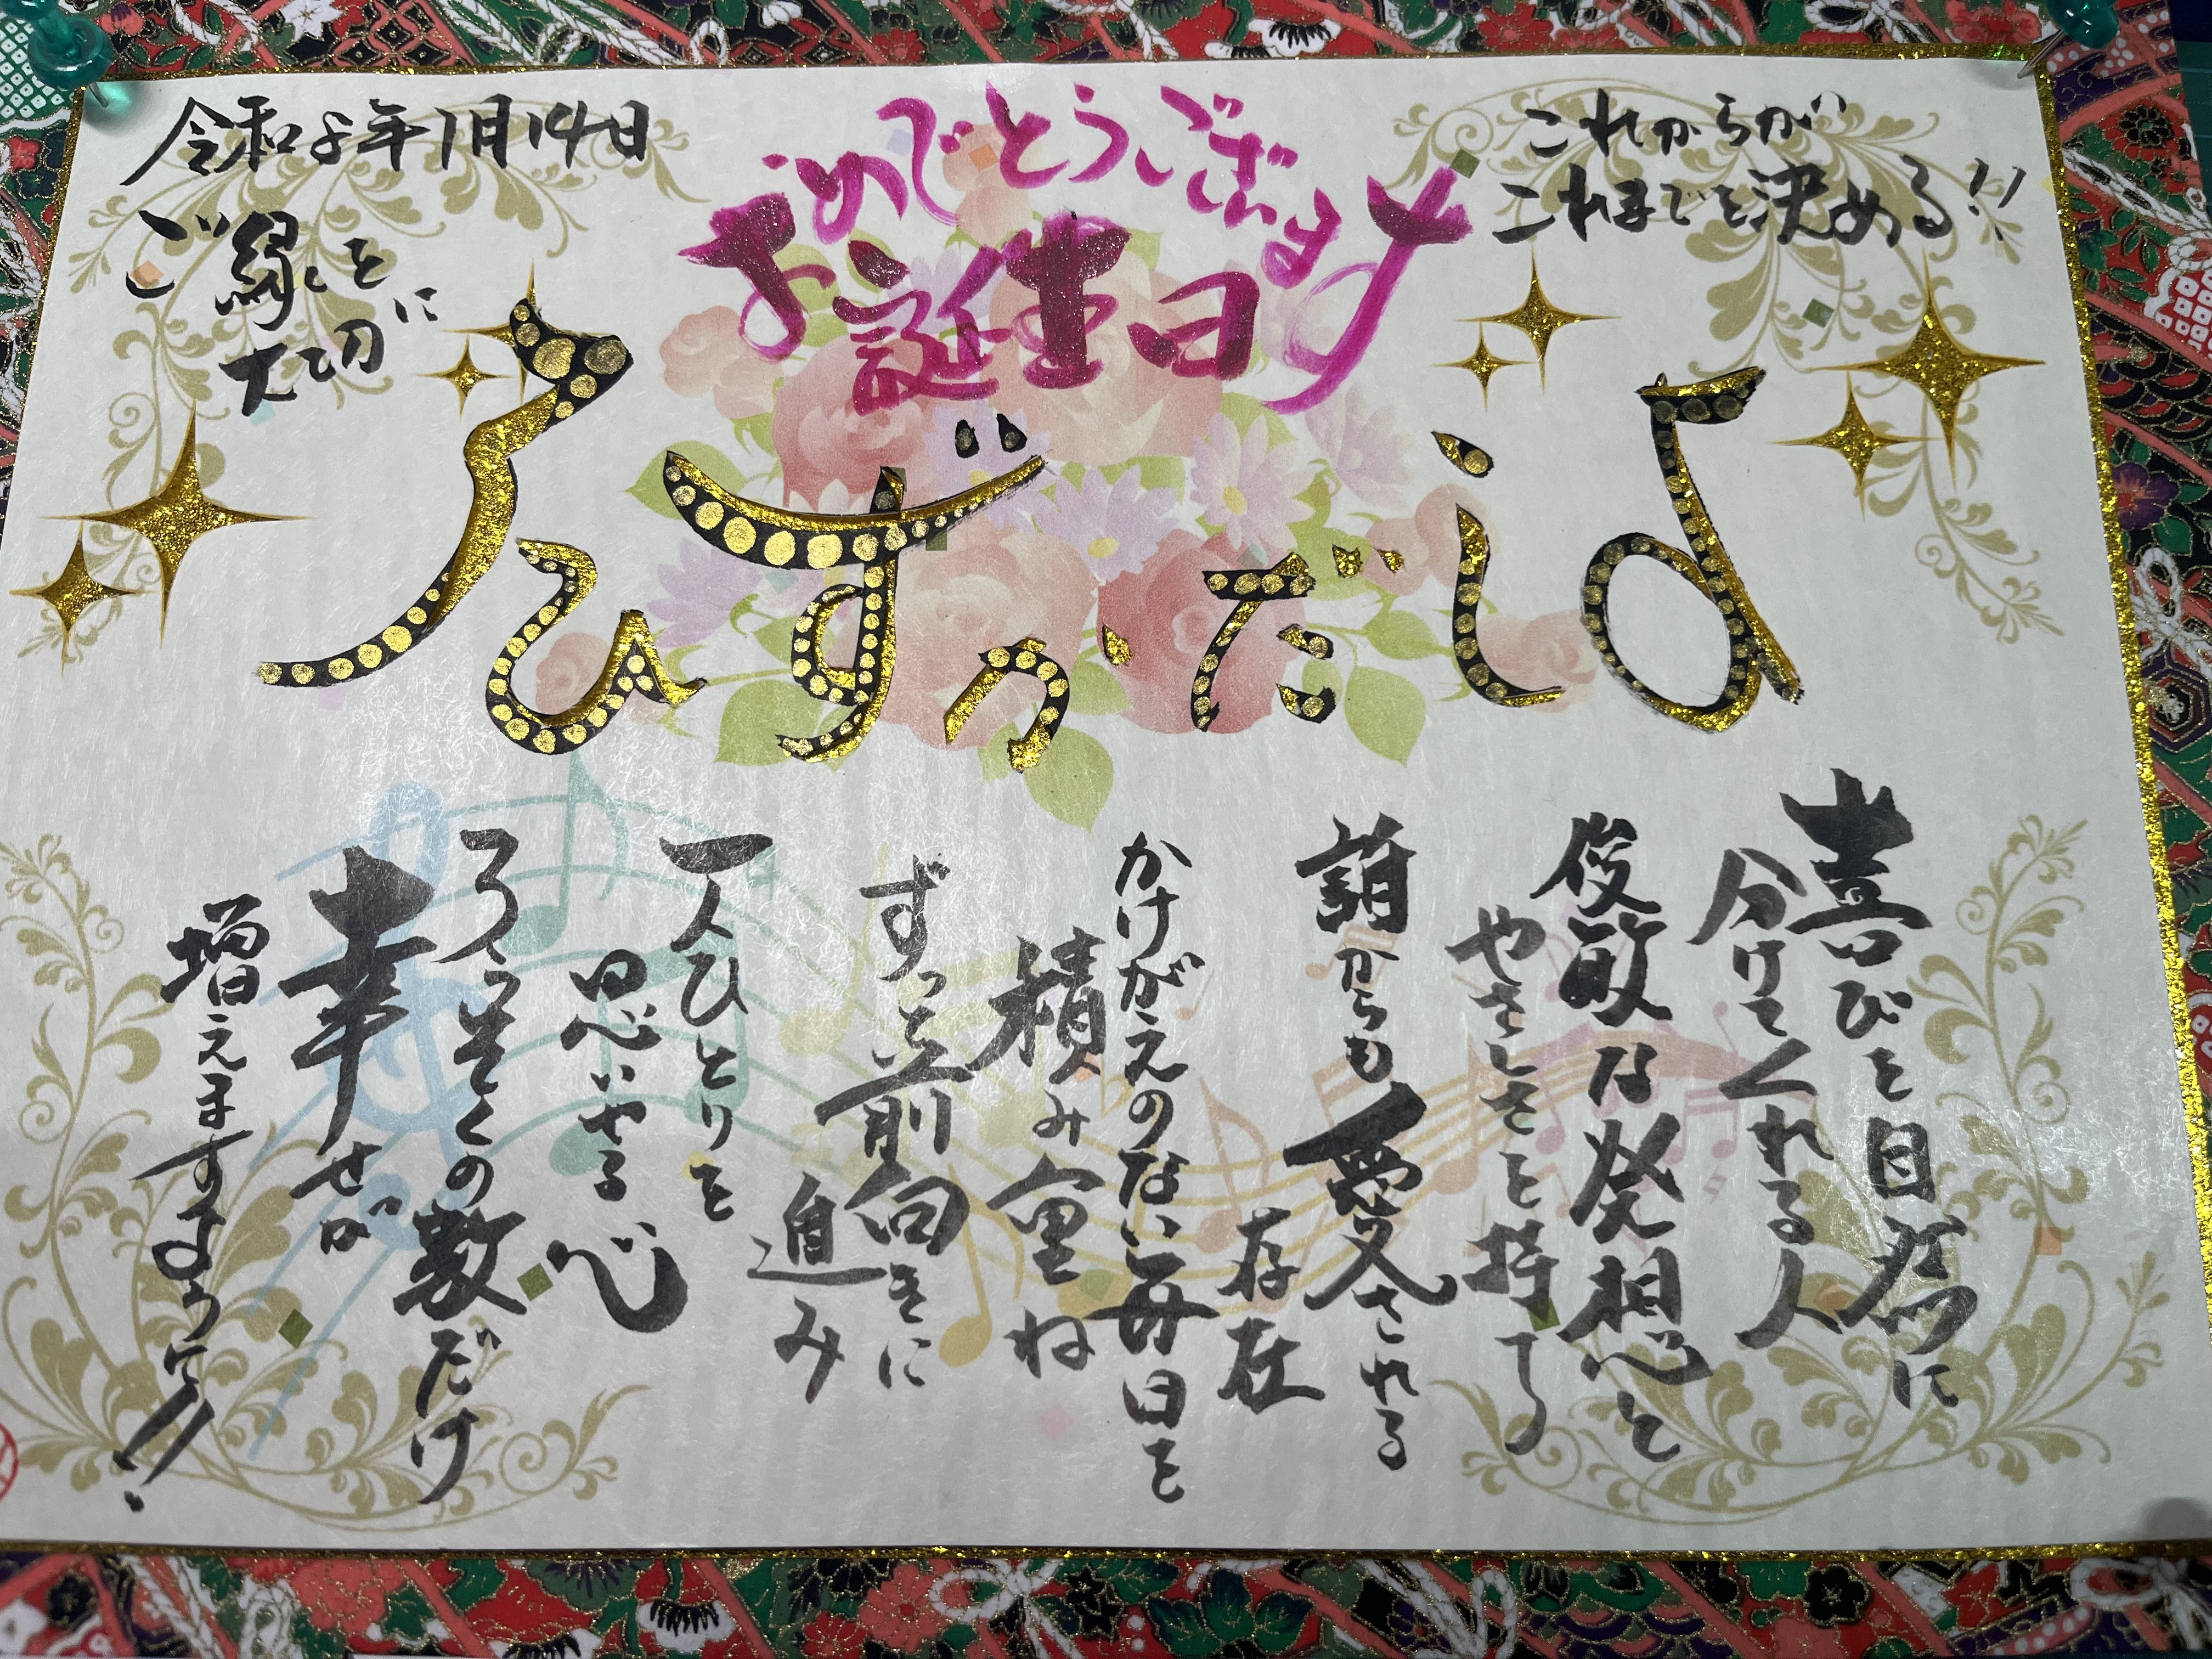 令和5年1月14日
ご縁を
大切に
おめでとうございます
お誕生日
これからが
これまでを決める!!
よしだかずひろ
喜びを自然に
分けてくれる人
俊敏な発想と
やさしさを持って
誰からも愛される
存在
かけがえのない毎日を
積み重ね
ずっと前向きに
進み
一人ひとりを
思いやる心
ろうそくの数だけ
幸せが
増えますように!!